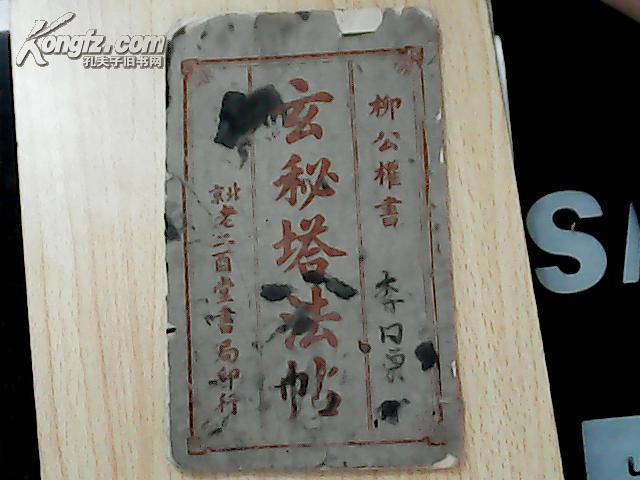 Kongfz.com
孔夫子旧书网
柳公權書
玄秘塔法帖
北京
老二酉堂書局印行
李同
S